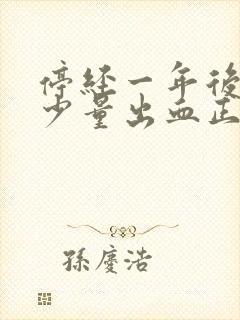 停経一年後
少量出血正
孫慶浩